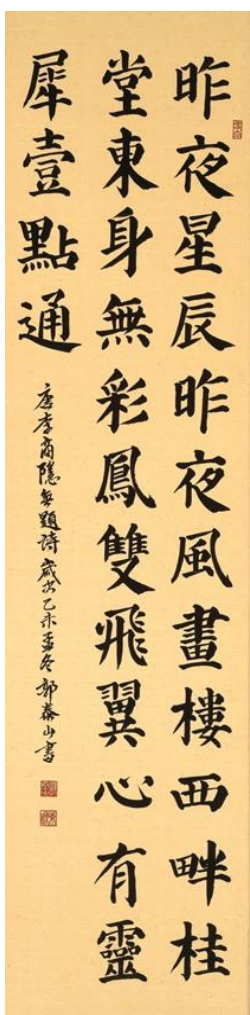 昨夜星辰昨夜風畫樓西畔桂
堂東身無彩鳳雙飛翼心有靈
犀壹點通
唐李商隱無題詩歲次乙未孟冬郭泰山書